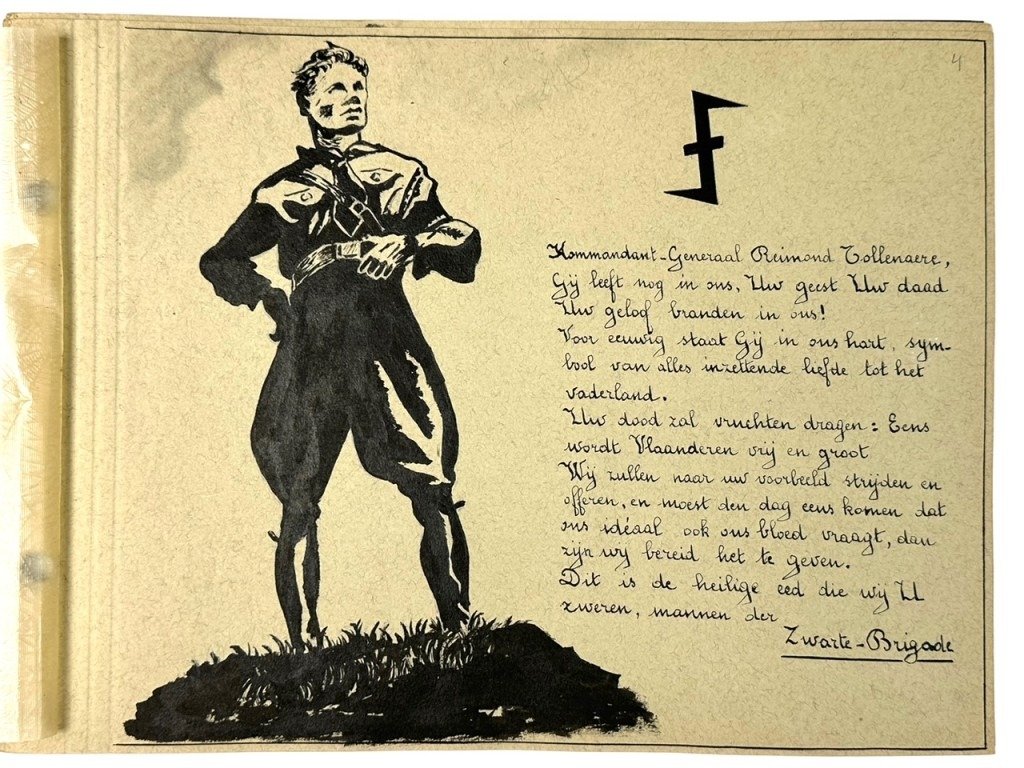 4
Kommandant-Generaal Reimond Tollenaere,
Gij leeft nog in ons, Uw geest Uw daad
Uw geloof branden in ons!
Voor eeuwig staat Gij in ons hart, sym-
bool van alles inzettende liefde tot het
vaderland.
Uw dood zal vruchten dragen: Eens
wordt Vlaanderen vrij en groot
Wij zullen naar uw voorbeeld strijden en
offeren, en moest den dag eens komen dat
ons idéaal ook ons bloed vraagt, dan
zijn wij bereid het te geven.
Dit is de heilige eed die wij U
zweren, mannen der
Zwarte-Brigade